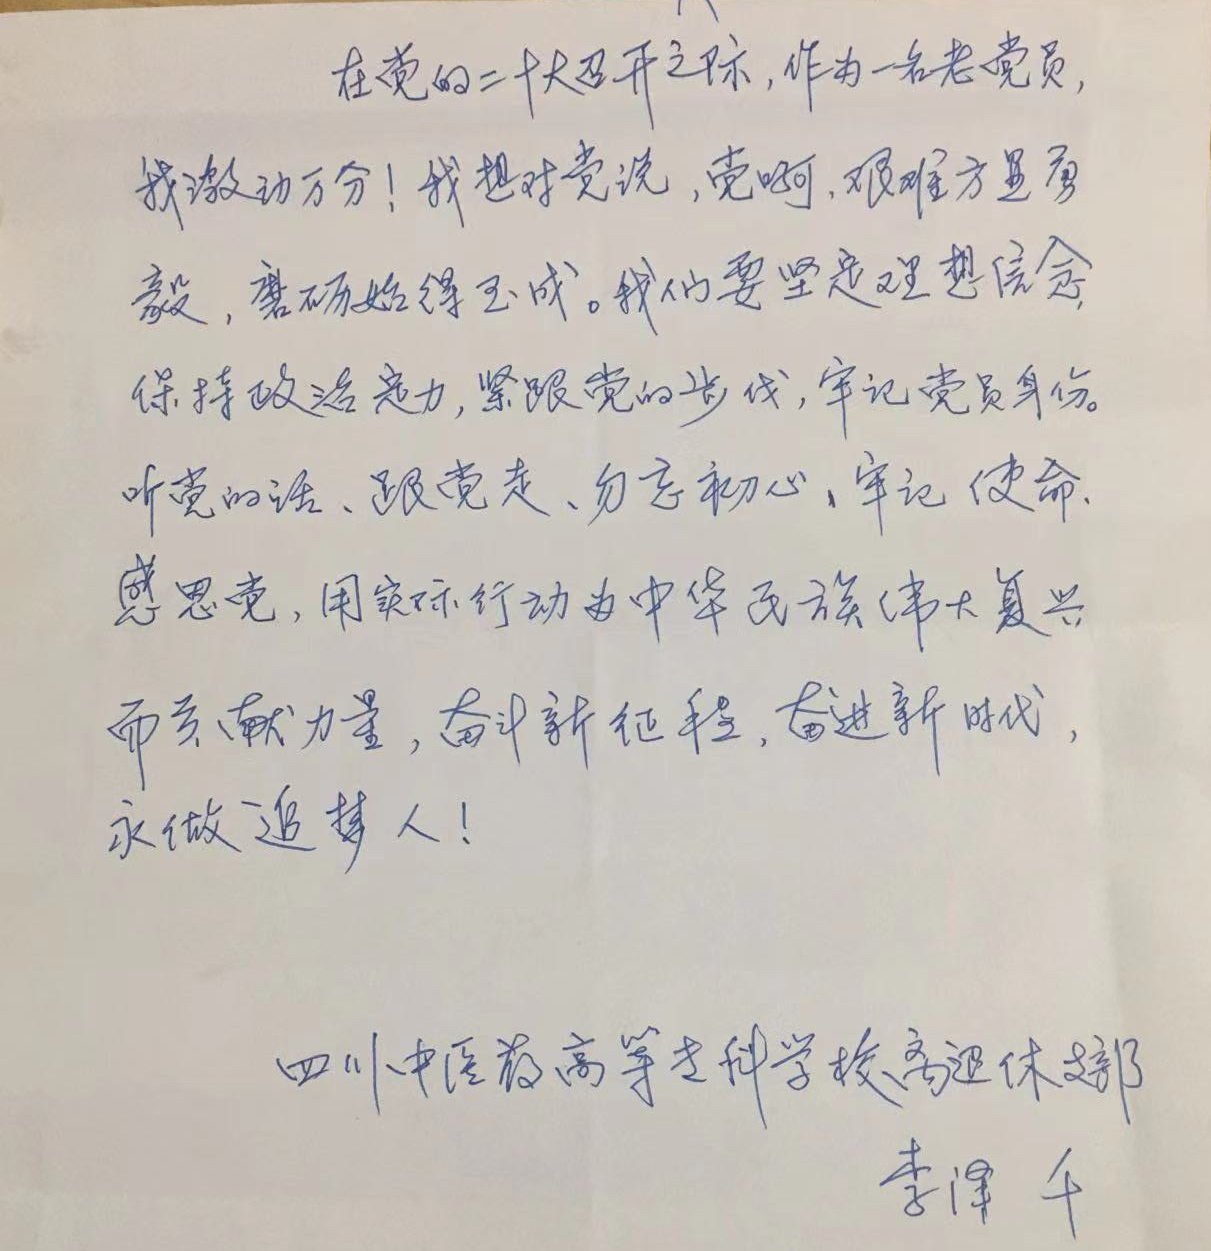 在党的二十大召开之际，作为一名老党员，
我激动万分！我想对党说，党啊，艰难方显勇
毅，磨砺始得玉成。我们要坚定理想信念，
保持政治定力，紧跟党的步伐，牢记党员身份。
听党的话、跟党走、勿忘初心、牢记使命、
感恩党，用实际行动为中华民族伟大复兴
而贡献力量，奋斗新征程，奋进新时代，
永做追梦人！
四川中医药高等专科学校离退休支部
李泽千